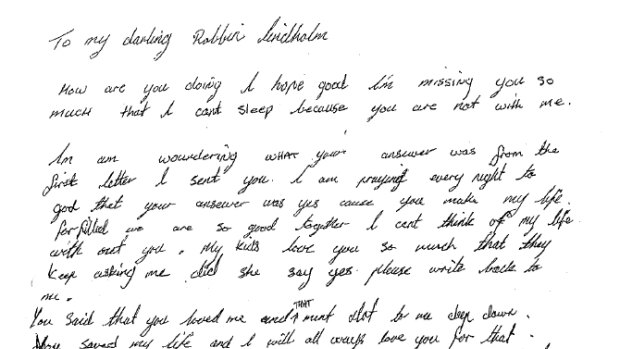 To my darling Robbin Lindholm
How are you doing I hope good I'm missing you so
much that I cant sleep because you are not with me.
Im am woundering WHAT your answer was from the
first letter I sent you. I am praying every night to
god that your answer was yes cause you make my life.
forfilled we are so good together I cent think of my life
with out you. My kids love you so much that they
keep asking me did she say yes please write back to
me.
You said that you loved me and THAT ment alot to me deep down.
You saved my life and I will all ways love you for that.